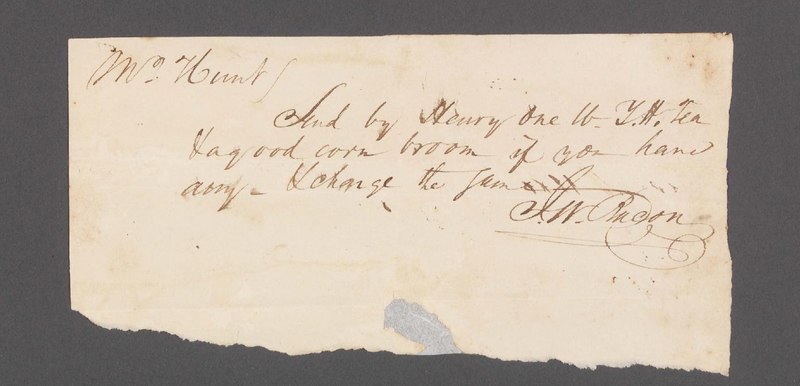 Mr. Hunt
Send by Henry One lb. Y.H. Tea
& a good corn broom if you have
any - & charge the same
J. W.